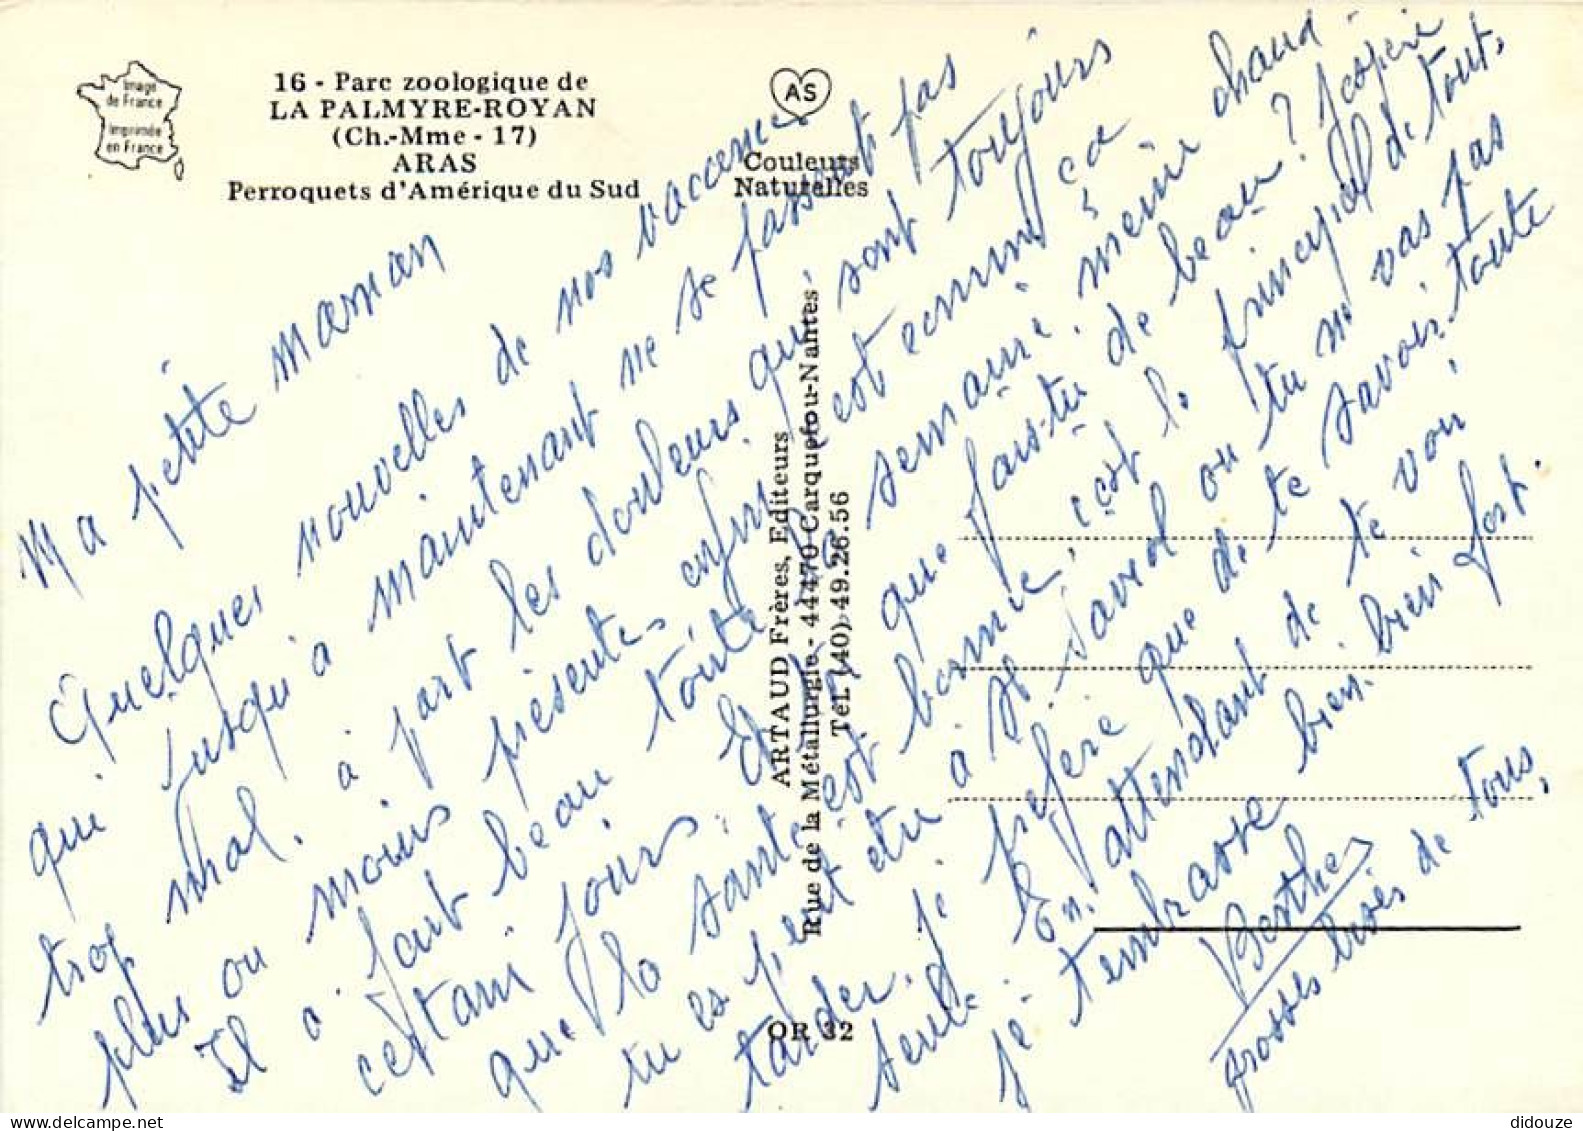 Image
de France
Imprimée
en France
16 - Parc zoologique de
LA PALMYRE-ROYAN
(Ch.-Mme - 17)
ARAS
Perroquets d'Amérique du Sud
AS
Couleurs
Naturelles
ARTAUD Frères, Editeurs
Rue de la Métallurgie - 44470 Carquefou-Nantes
Tél. (40) 49.26.56
OR 32
Ma petite maman
Quelques nouvelles de nos vacances
qui jusqu'à maintenant ne se passent pas
trop mal. à part les douleurs qui sont toujours
plus ou moins présentes enfin c'est comme ça
Il a fait beau toute la semaine, même chaud
certain jours. Et que fais-tu de beau? J'espère
que la santé est bonne, c'est le principal de tout,
tu es peut etre à St ou tu ne vas pas
tarder. je préfère que de te savoir toute
seule. En attendant de te voir,
je t'embrasse bien bien fort.
Berthe
grosses bises de tous,
didouze